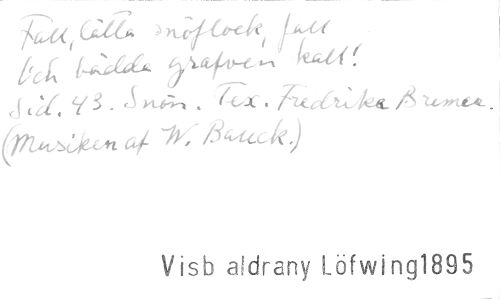 Fall, lätta snöflock, fall
Och bädda grafven kall!
Sid. 43. Snön. Tex. Fredrika Bremer.
(Musiken af W. Bauck.)
Visb aldrany Löfwing1895